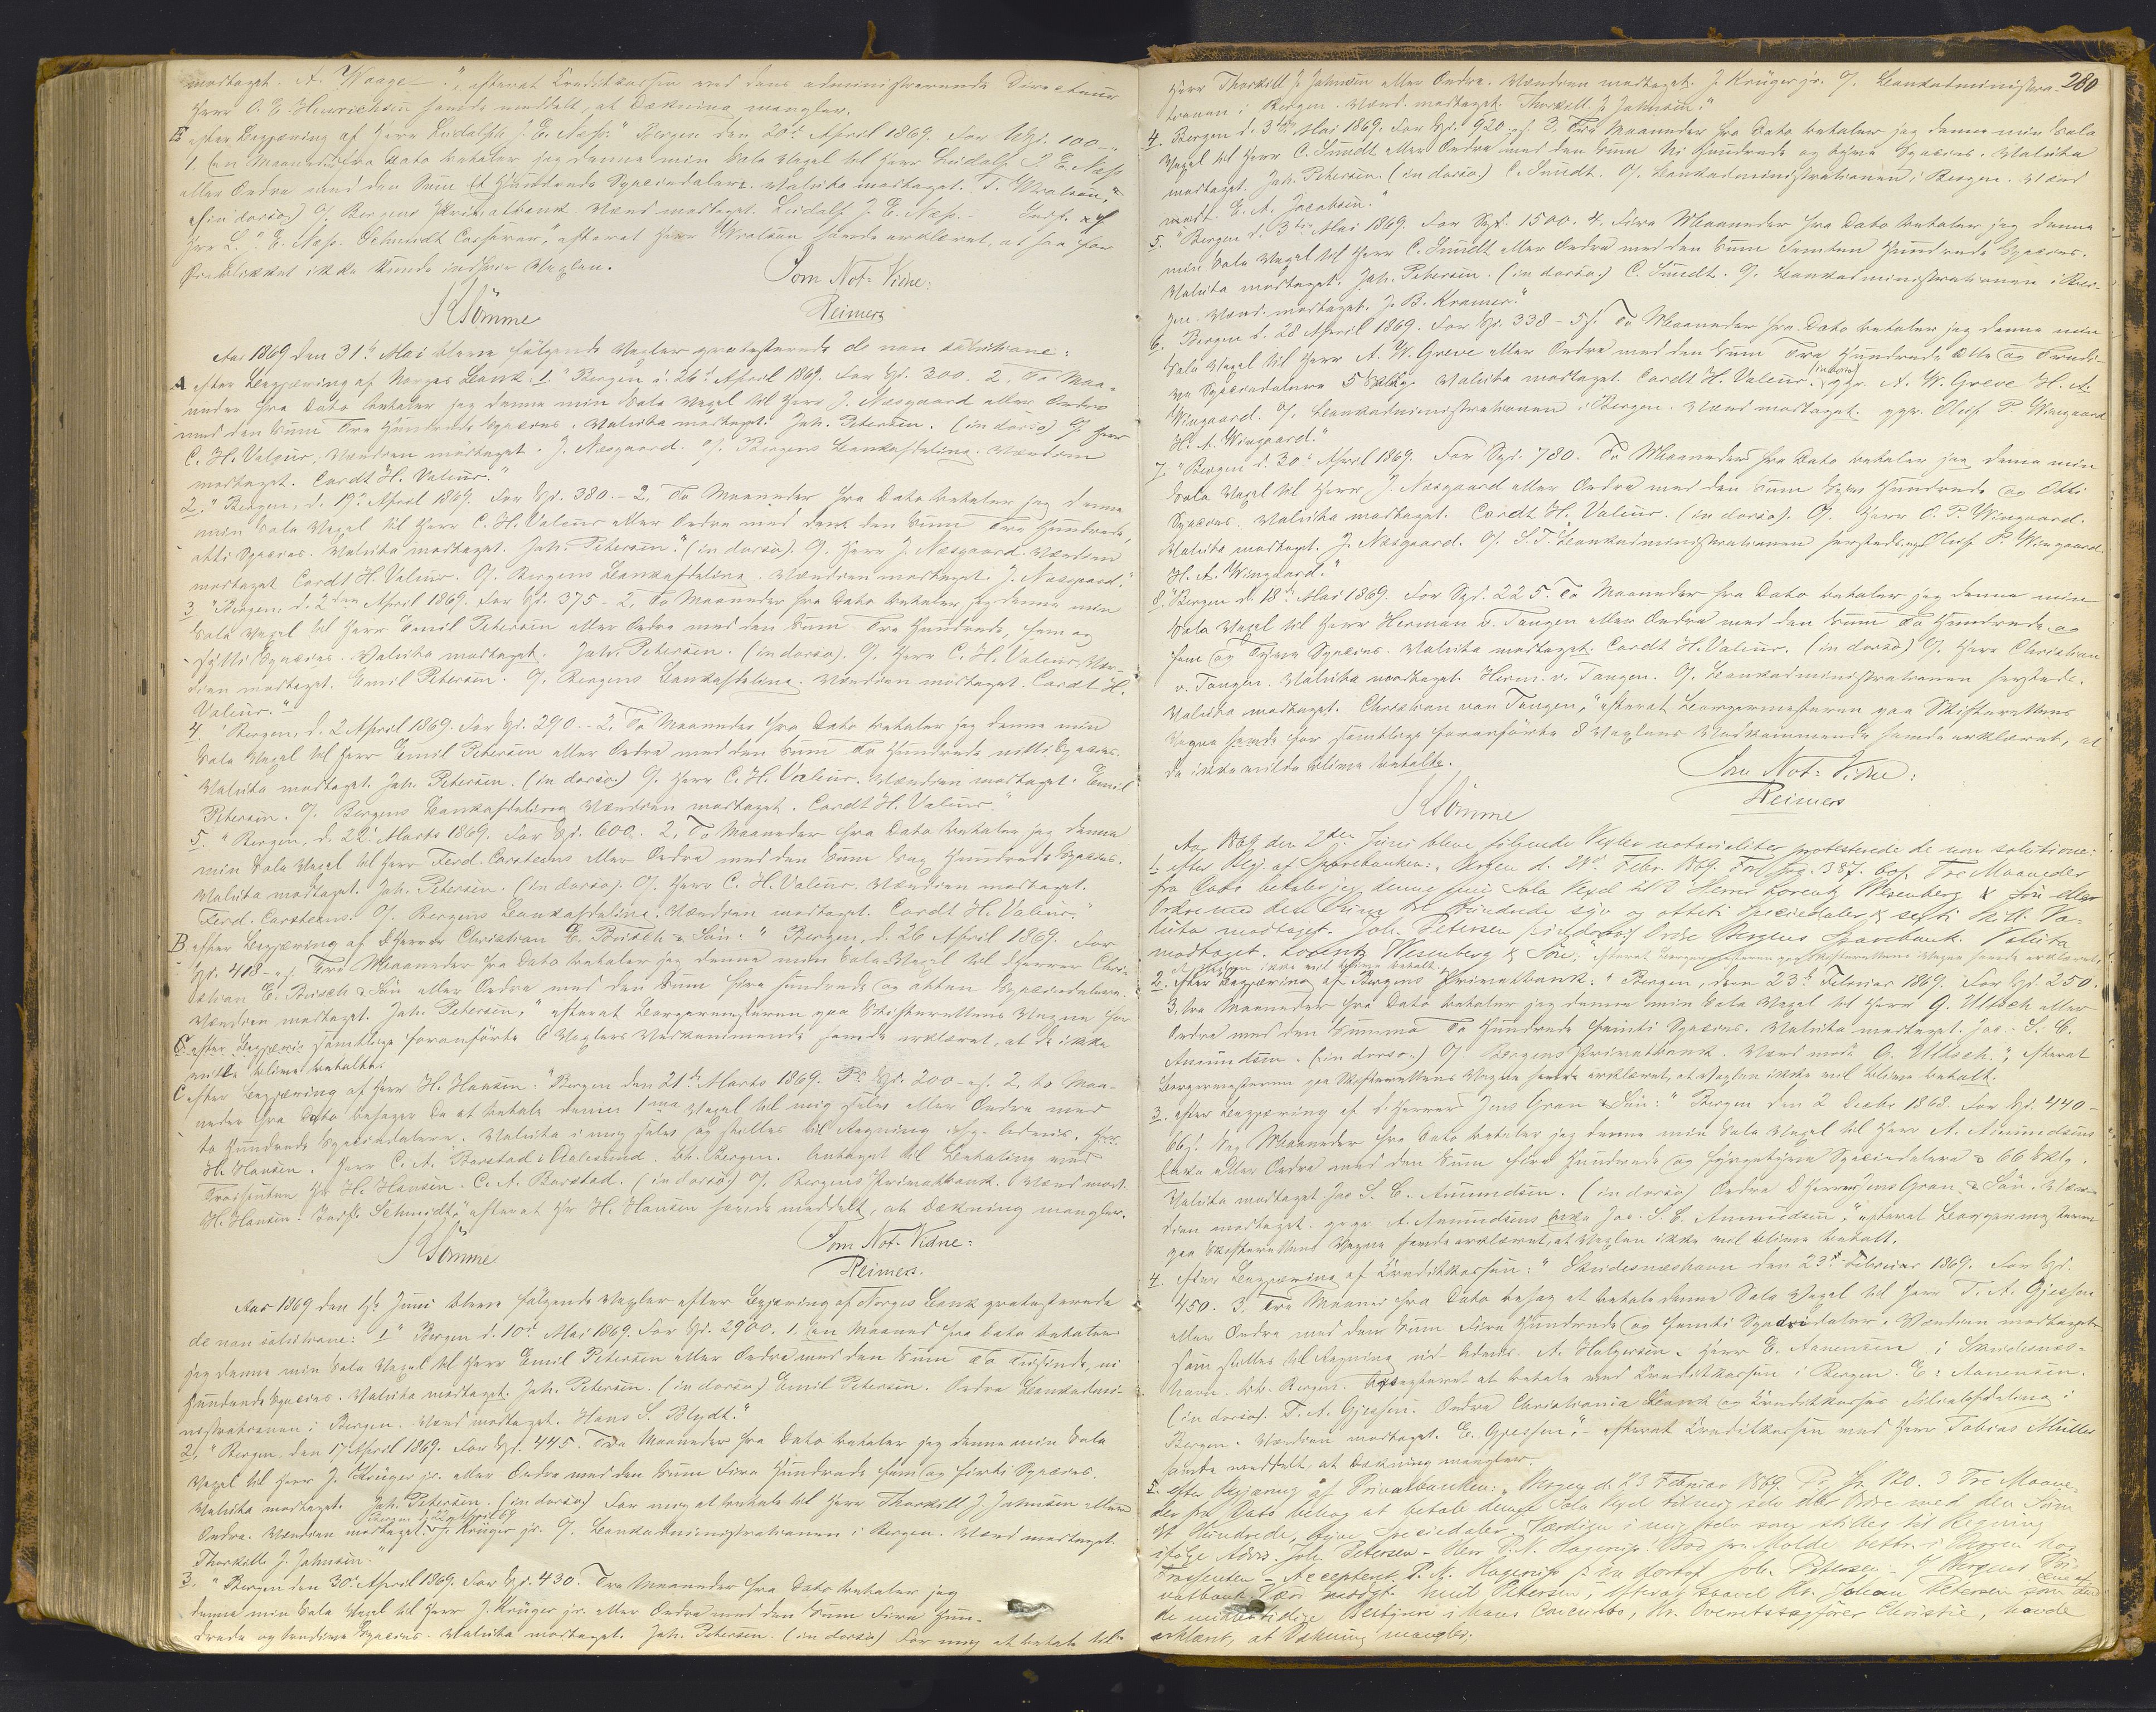 modtaget. A. Waage", efterat Creditkassen ved dens administrerende Directeur
Herr O. E. Hinrichsen havde meddelt, at Dækning mangler.
B efter Begjæring af Herr Ludolph J. E. Næss: "Bergen den 20de April 1869. For Spd. 100 –
1. En Maaned fra Dato betaler jeg denne min Sola Vexel til Herr Ludolph J. E. Næss
eller Ordre med den Sum Et Hundrede Speciedalere. Valuta modtaget. T. Wratson."
(in dorso) O/. Bergens Privatbank. Værd. modtaget. Ludolph J. E. Næss.
E. Næss. Schmidt Casserer", efterat Herr Wratson havde erklæret, at han for
Øieblikket ikke kunde indfrie Vexlen.
Som Not. Vidne:
Sömme
Reimers
Aar 1869 den 31te Mai bleve følgende Vexler protesterede de non solutione:
A efter Begjæring af Norges Bank: 1. "Bergen d. 26de April 1869. For Spd. 300. 2. To Maa-
neder fra Dato betaler jeg denne min Sola Vexel til Herr J. Næsgaard eller Ordre
med den Sum Tre Hundrede Species. Valuta modtaget. Joh. Petersen. (in dorso) O/. Herr
C. H. Valeur, Værdien modtaget. J. Næsgaard. O/. Bergens Bankafdeling. Værdien
modtaget. Cardt H. Valeur."
2. "Bergen, d. 19de April 1869. For Spd. 380. – 2. To Maaneder fra Dato betaler jeg denne
min Sola Vexel til Herr C. H. Valeur eller Ordre med den Sum Tre Hundrede,
otti Species. Valuta modtaget. Joh. Petersen." (in dorso). O/. Herr J. Næsgaard. Værdien
modtaget Cardt H. Valeur. O/. Bergens Bankafdeling. Værdien modtaget. J. Næsgaard."
3. "Bergen, d. 2den April 1869. For Spd. 375 – 2. To Maaneder fra Dato betaler jeg denne min
Sola Vexel til Herr Emil Petersen eller Ordre med den Sum Tre Hundrede, fem og
sytti Species. Valuta modtaget. Joh. Petersen. (in dorso). O/. Herr C. H. Valeur, Vær-
dien modtaget. Emil Petersen. O/. Bergens Bankafdeling. Værdien modtaget. Cardt H.
Valeur."
4. "Bergen, d. 2 April 1869. For Spd. 290 – 2. To Maaneder fra Dato betaler jeg denne min
Sola Vexel til Herr Emil Petersen eller Ordre med den Sum To Hundrede nitti Species.
Valuta modtaget. Joh. Petersen. (in dorso.) O/. Herr C. H. Valeur. Værdien modtaget. Emil
Petersen. O/. Bergens Bankafdeling Værdien modtaget. Cardt H. Valeur."
5. "Bergen, d. 22de Marts 1869. For Spd. 600. 2. To Maaneder fra Dato betaler jeg denne
min Sola Vexel til Herr Ferd. Carstens eller Ordre med den Sum Sex Hundrede Species.
Valuta modtaget. Joh. Petersen. (in dorso). O/. Herr C. H. Valeur. Værdien modtaget.
Ferd. Carstens. O/. Bergens Bankafdeling. Værdien modtaget. Cardt H. Valeur."
B efter Begjæring af D'Herrer Christian E. Brisch & Søn: "Bergen, d. 26 April 1869. For
Spd. 418 – Tre Maaneder fra Dato betaler jeg denne min Sola Vexel til D'Herrer Chri-
stian E. Brisch & Søn eller Ordre med den Sum fire hundrede og atten Speciedalere.
Værdien modtaget. Joh. Petersen," efterat Borgermesteren paa Skifterettens Vegne for
samtlige foranførte 6 Vexlers Vedkommende havde erklæret, at de ikke
vilde blive betalte.
C efter Begjæring af Herr H. Hansen: "Bergen den 21de Marts 1869. Pr. Spd. 200 – 2. to Maa-
neder fra Dato behager De at betale denne 1ma Vexel til mig selv eller Ordre med
to Hundrede Speciedalere. Valuta i mig selv og stilles til Regning ifg. Advis.
H. Hansen. Herr C. A. Barstad i Aalesund. bet. Bergen. Antaget til Betaling med
Trassenten Hr. H. Hansen. C. A. Barstad. (in dorso) O/. Bergens Privatbank. Værd modt.
H. Hansen. Schmidt", efterat Hr. H. Hansen havde meddelt, at Dækning mangler.
Sömme
Som Not. Vidne:
Reimers.
Aar 1869 den 1ste Juni bleve følgende Vexler efter Begjæring af Norges Bank protesterede
de non solutione: 1. "Bergen d. 10de Mai 1869. For Spd. 2900. 1. En Maaned fra Dato betaler
jeg denne min Sola Vexel til Herr Emil Petersen eller Ordre med den Sum To Tusinde, ni
Hundrede Species. Valuta modtaget. Joh. Petersen. (in dorso) Emil Petersen. Ordre Bankadmi-
nistrationen i Bergen. Værd modtaget. Hans S. Blydt."
2. "Bergen, den 17 April 1869. For Spd. 445. Tre Maaneder fra Dato betaler jeg denne min Sola
Vexel til Herr J. Krüger jr. eller Ordre med den Sum Fire Hundrede fem og firti Species.
Valuta modtaget. Joh. Petersen. (in dorso) For mig at betale til Herr Thorkill J. Johnsen eller
Bergen d. 22 April 69
Ordre. Værdien modtaget. J. Krüger jr. O/. Bankadministrationen i Bergen. Værd modtaget.
Thorkill J. Johnsen."
3. "Bergen den 30de April 1869. For Spd. 430. Tre Maaneder fra Dato betaler jeg
denne min Sola Vexel til Herr J. Krüger jr. eller Ordre med den Sum Fire Hun-
drede og tredive Species. Valuta modtaget. Joh. Petersen. (in dorso) For mig at betale til
280
Herr Thorkill J. Johnsen eller Ordre. Værdien modtaget. J. Krüger jr. O/. Bankadministra-
tionen i Bergen. Værd. modtaget. Thorkill J. Johnsen."
4. Bergen d. 3die Mai 1869. For Spd. 920. 3. Tre Maaneder fra Dato betaler jeg denne min Sola
Vexel til Herr C. Sundt eller Ordre med den Sum Ni Hundrede og tyve Species. Valuta
modtaget. Joh. Petersen. (in dorso.) C. Sundt. O/. Bankadministrationen i Bergen. Værd
modt. E. A. Jacobsen."
5. "Bergen d. 3die Mai 1869. For Spd. 1500. 4. Fire Maaneder fra Dato betaler jeg denne
min Sola Vexel til Herr C. Sundt eller Ordre med den Sum Femten Hundrede Species.
Valuta modtaget. Joh. Petersen. (in dorso.) C. Sundt. O/. Bankadministrationen i Ber-
gen. Værd. modtaget. J. B. Kramer."
6. Bergen d. 28 April 1869. For Spd. 338 – 5 s. To Maaneder fra Dato betaler jeg denne min
Sola Vexel til Herr A. W. Greve eller Ordre med den Sum Tre Hundrede Otte og Tredi-
ve Speciedalere 5 Sk. Valuta modtaget. Cardt H. Valeur. (in dorso) ppr. A. W. Greve H. A.
Wingaard. O/. Bankadministrationen i Bergen. Værd modtaget. ppr. Oluf P. Wingaard
H. A. Wingaard."
7. "Bergen d. 30de April 1869. For Spd. 780. To Maaneder fra Dato betaler jeg denne min
Sola Vexel til Herr J. Næsgaard eller Ordre med den Sum Syv Hundrede og Otti
Species. Valuta modtaget. Cardt H. Valeur. (in dorso). O/. Herr O. P. Wingaard.
Valuta modtaget. J. Næsgaard. O/. S. T. Bankadministrationen hersteds. ppr Oluf P. Wingaard.
H. A. Wingaard."
8. "Bergen d. 18de Mai 1869. For Spd. 225. To Maaneder fra Dato betaler jeg denne min
Sola Vexel til Herr Herman v. Tangen eller Ordre med den Sum To Hundrede og
fem og Tyve Species. Valuta modtaget. Cardt H. Valeur. (in dorso) O/. Herr Christian
v. Tangen. Valuta modtaget. Herm. v. Tangen. O/. Bankadministrationen hersteds.
Valuta modtaget. Christian von Tangen," efterat Borgermesteren paa Skifterettens
Vegne havde for samtlige foranførte 8 Vexlers Vedkommende havde erklæret, at
de ikke vilde blive betalte.
Som Not. Vidne:
Sömme
Reimers
Aar 1869 den 2den Juni bleve følgende Vexler notarialiter protesterede de non solutione:
1. efter Begj. af Sparebanken: "Bergen d. 27de Febr. 1869. For Spd. 387. 60 s. Tre Maaneder
fra Dato betaler jeg denne min Sola Vexel til D'Herrer Lorentz Wesenberg & Søn eller
Ordre med den Sum Tre Hundrede syv og otteti Speciedaler & sexti Skill. Va-
luta modtaget. Joh. Petersen (in dorso) Ordre Bergens Sparebank. Valuta
modtaget. Lorentz Wesenberg & Søn", efterat Borgermesteren paa Skifterettens Vegne havde erklæret,
at Vexlen ikke vil blive betalt.
2. efter Begjæring af Bergens Privatbank: "Bergen, den 23de Februar 1869. For Spd. 250.
3, tre Maaneder fra Dato betaler jeg denne min Sola Vexel til Herr G. Utlsch eller
Ordre med den Summa To Hundrede femti Species. Valuta modtaget. Jac. S. C.
Amundsen. (in dorso.) O/. Bergens Privatbank. Værd modt. G. Utlsch.", efterat
Borgermesteren paa Skifterettens Vegne havde erklæret, at Vexlen ikke vil blive betalt.
3. efter Begjæring af d'Herrer Jens Gran & Søn: "Bergen den 2 Decbr 1868. For Spd. 440 –
66 s. Sex Maaneder fra Dato betaler jeg denne min Sola Vexel til Herr A. Amundsens
Enke eller Ordre med den Sum fire Hundrede og fyrgetyve Speciedalere & 66 Sk.
Valuta modtaget Jac S. C. Amundsen. (in dorso) Ordre D'Herrer Jens Gran & Søn. Vær-
dien modtaget. pr. pr. A. Amundsens Enke Jac. S. C. Amundsen," efterat Borgermesteren
paa Skifterettens Vegne havde erklæret, at Vexlen ikke vil blive betalt.
4. efter Begjæring af Creditkassen: "Skudesneshavn den 23de Februar 1869. For Spd.
450. 3. Tre Maaner fra Dato behag at betale denne Sola Vexel til Herr T. A. Gjessen
eller Ordre med den Sum Fire Hundrede og femti Speciedaler. Værdien modtaget
som stilles til Regning uden Advis. A. Holgersen. Herr E. Aanensen i Skudesnes-
havn. bet. Bergen. Accepteret at betale ved Creditkassen i Bergen. E. Aanensen.
(in dorso). T. A. Gjessen. Ordre Christiania Bank og Creditkasses Filialafdeling i
Bergen. Værdien modtaget. T. Gjessen", – efterat Creditkassen ved Herr Tobias Müller
havde meddelt at Dækning mangler.
5. efter Begjæring af Privatbanken: "Bergen d. 23 Februar 1869. Pr. Sp. 120. 3 Tre Maane-
der fra Dato behag at betale denne Sola Vexel til mig selv eller Ordre med den Sum
Et Hundrede, tyve Speciedaler. Værdien i mig selv som stilles til Regning
ifølge Advis. Joh. Petersen – Herr P. A. Hagerup. Bod pr. Molde betlr. i Bergen hos
Trassenten – Accepteret. P. A. Hagerup (: in dorso: Joh. Petersen – O/ Bergens Pri-
vatbank. Værd. modtgt. Emil Petersen", efterat saavel Hr. Johan Petersen som den
de midlertidige Bestyrer i hans Concursbo, Hr. Overretssagfører Christie, havde
erklæret, at Dækning mangler.